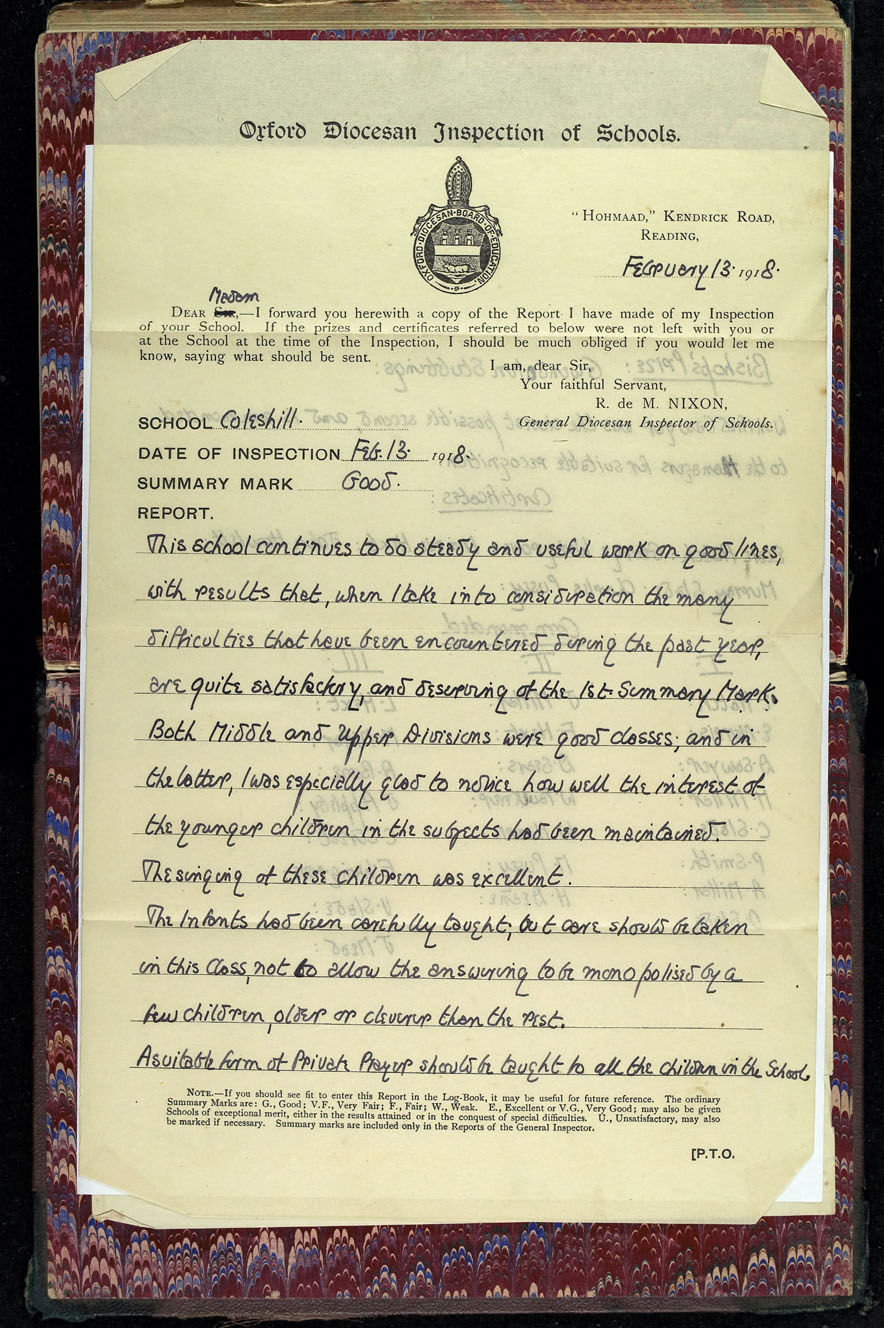 Oxford Diocesan Inspection of Schools.
OXFORD·DIOCESAN·BOARD·OF·EDUCATION
"Hohmaad," Kendrick Road,
Reading,
February 13. 1918.
Madam
Dear Sir,—I forward you herewith a copy of the Report I have made of my Inspection
of your School. If the prizes and certificates referred to below were not left with you or
at the School at the time of the Inspection, I should be much obliged if you would let me
know, saying what should be sent.
I am, dear Sir,
Your faithful Servant,
R. de M. NIXON,
General Diocesan Inspector of Schools.
SCHOOL Coleshill.
DATE OF INSPECTION Feb. 13. 1918.
SUMMARY MARK Good.
REPORT.
This school continues to do steady and useful work on good lines,
with results that, when I take into consideration the many
difficulties that have been encountered during the past year,
are quite satisfactory, and deserving of the 1st Summary Mark.
Both Middle and Upper Divisions were good classes; and in
the latter, I was especially glad to notice how well the interest of
the younger children in the subjects had been maintained.
The singing of these children was excellent.
The Infants had been carefully taught; but care should be taken
in this Class, not to allow the answering to be monopolised by a
few children, older or cleverer than the rest.
A suitable form of Private Prayer should be taught to all the children in the School.
Note.—If you should see fit to enter this Report in the Log-Book, it may be useful for future reference. The ordinary
Summary Marks are: G., Good; V.F., Very Fair; F., Fair; W., Weak. E., Excellent or V.G., Very Good; may also be given
Schools of exceptional merit, either in the results attained or in the conquest of special difficulties. U., Unsatisfactory, may also
be marked if necessary. Summary marks are included only in the Reports of the General Inspector.
[P.T.O.